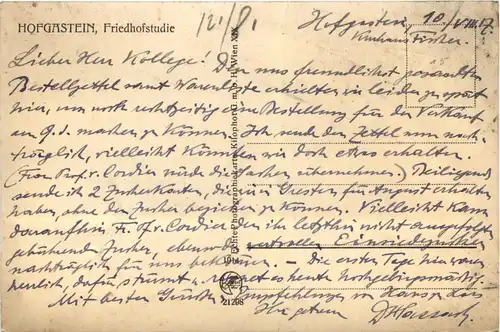 HOFGASTEIN, Friedhofstudie
12/8.
Hofgastein, 10. VIII. 17.
Kurhaus Fischer.
Lieber Herr Kollege! Den uns freundlichst gesandten
Bestellzettel samt Warenliste erhielten wir leider zu spät
hier, um noch rechtzeitig eine Bestellung für den Verkauf
am 9. d. machen zu können. Ich sende den Zettel nun nach-
träglich, vielleicht könnten wir doch etwas erhalten.
(Frau Prof. v. Cordier würde die Sachen übernehmen.) Beiliegend
sende ich 2 Zuckerkarten, die wir in Gresten für August erhalten
haben, ohne den Zucker beziehen zu können. Vielleicht kann
daraufhin Fr. Pr. v. Cordier den ihr letzthin nicht ausgefolgten
gebührenden Zucker, ebenso den wertvollen Einsiedezucker
nachträglich für uns bekommen. – Die ersten Tage hier waren
herrlich, dafür stürmt u. regnet es heute hochgebirgsmäßig.
Mit besten Grüßen u. Empfehlungen von Haus zu Haus
Ihr getreuer
Echte Photographie Karte Kilophot G. m. b. H. Wien XIX
21298